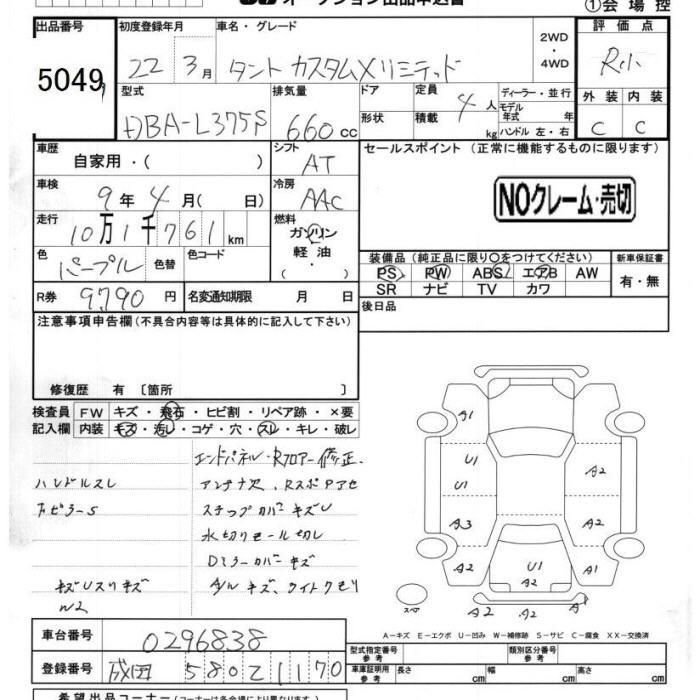 オークション出品申込書
①会場控
出品番号 初度登録年月 車名・グレード 2WD ・ 4WD 評価点
5049 22 3月 タント カスタムXリミテッド R小
型式 排気量 ドア 定員 4人 ディーラー・並行 外装 内装
DBA-L375S 660cc 形状 積載 kg モデル年式 年 ハンドル 左・右 C C
車歴 自家用・( ) シフト AT セールスポイント (正常に機能するものに限ります)
車検 9年4月( 日) 冷房 AAC NOクレーム・売切
走行 10万1千761km 燃料 ガソリン・軽油・
装備品 (純正品に限り〇をつけてください) 新車保証書
色 パープル 色替 色コード PS PW ABS エアB AW 有・無
SR ナビ TV カワ
R券 9790円 名変通知期限 月 日 後日品
注意事項申告欄 (不具合内容等は具体的に記入して下さい)
修復歴 有 〔箇所 〕
検査員 FW キズ・飛石・ヒビ割・リペア跡・×要
記入欄 内装 キズ・汚レ・コゲ・穴・スレ・キレ・破レ
エンドパネル・Rフロアー修正
ハンドルスレ アンテナ欠、RスポPアセ
ステップカバーキズU
水切りモール切レ
Dミラーカバーキズ
キズUスリキズ A/Wキズ、ライトクモリ
W2
A1
U1 A2
U1
A3 A2
A2 U1 A1
A2 A2
スペア
A-キズ E-エクボ U-凹み W-補修跡 S-サビ C-腐食 XX-交換済
車台番号 0296838 型式指定番号 参考 類別区分番号 参考
登録番号 成田 580 1170 車庫証明用 参考 長さ cm 幅 cm 高さ cm
希望出品コーナー